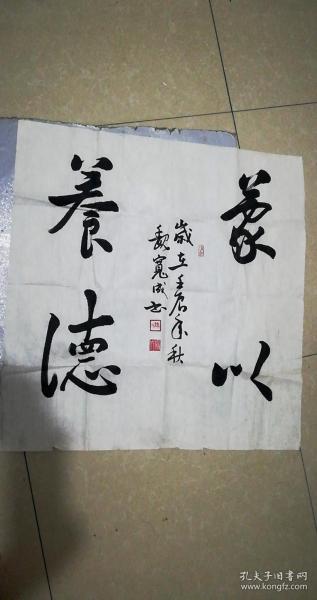 蒙以
養德
歲在壬辰年秋
魏寬成書
孔夫子旧书网
www.kongfz.com